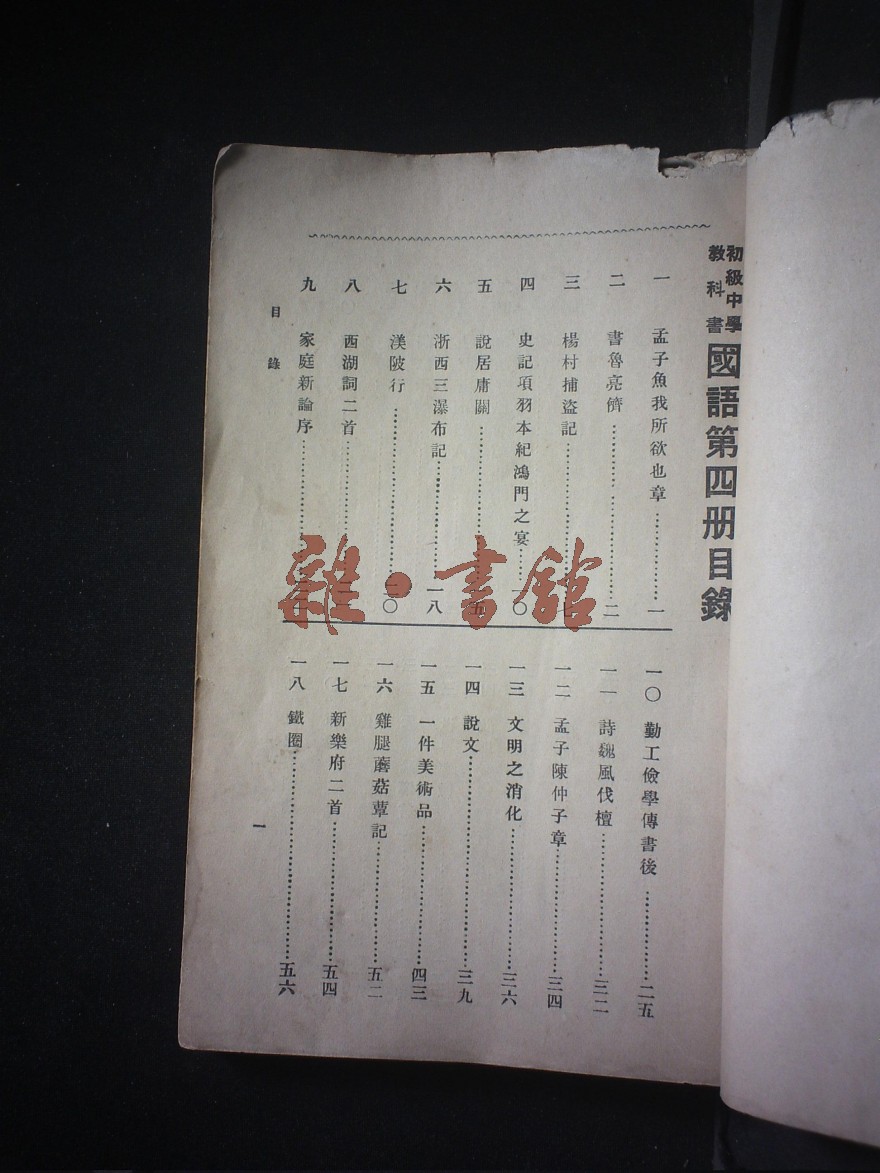 初級中學
教科書
國語第四册目錄
一 孟子魚我所欲也章……………一
二 書魯亮儕……………二
三 楊村捕盜記……………七
四 史記項羽本紀鴻門之宴……一〇
五 說居庸關……………
六 浙西三瀑布記……………一八
七 渼陂行……………二〇
八 西湖詞二首……………
九 家庭新論序……………
一〇 勤工儉學傳書後……………二五
一一 詩魏風伐檀……………三二
一二 孟子陳仲子章……………三四
一三 文明之消化……………三六
一四 說文……………三九
一五 一件美術品……………四三
一六 雞腿蘑菇蕈記……………五二
一七 新樂府二首……………五四
一八 鐵圈……………五六
目錄
一
雜·書館